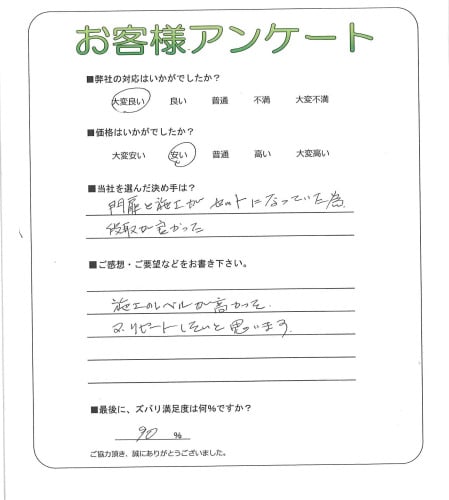 お客様アンケート
■弊社の対応はいかがでしたか？
大変良い 良い 普通 不満 大変不満
■価格はいかがでしたか？
大変安い 安い 普通 高い 大変高い
■当社を選んだ決め手は？
門扉と施工がセットになっていた為
段取が良かった
■ご感想・ご要望などをお書き下さい。
施工のレベルが高かった
又リピートしたいと思います
■最後に、ズバリ満足度は何％ですか？
90 ％
ご協力頂き、誠にありがとうございました。